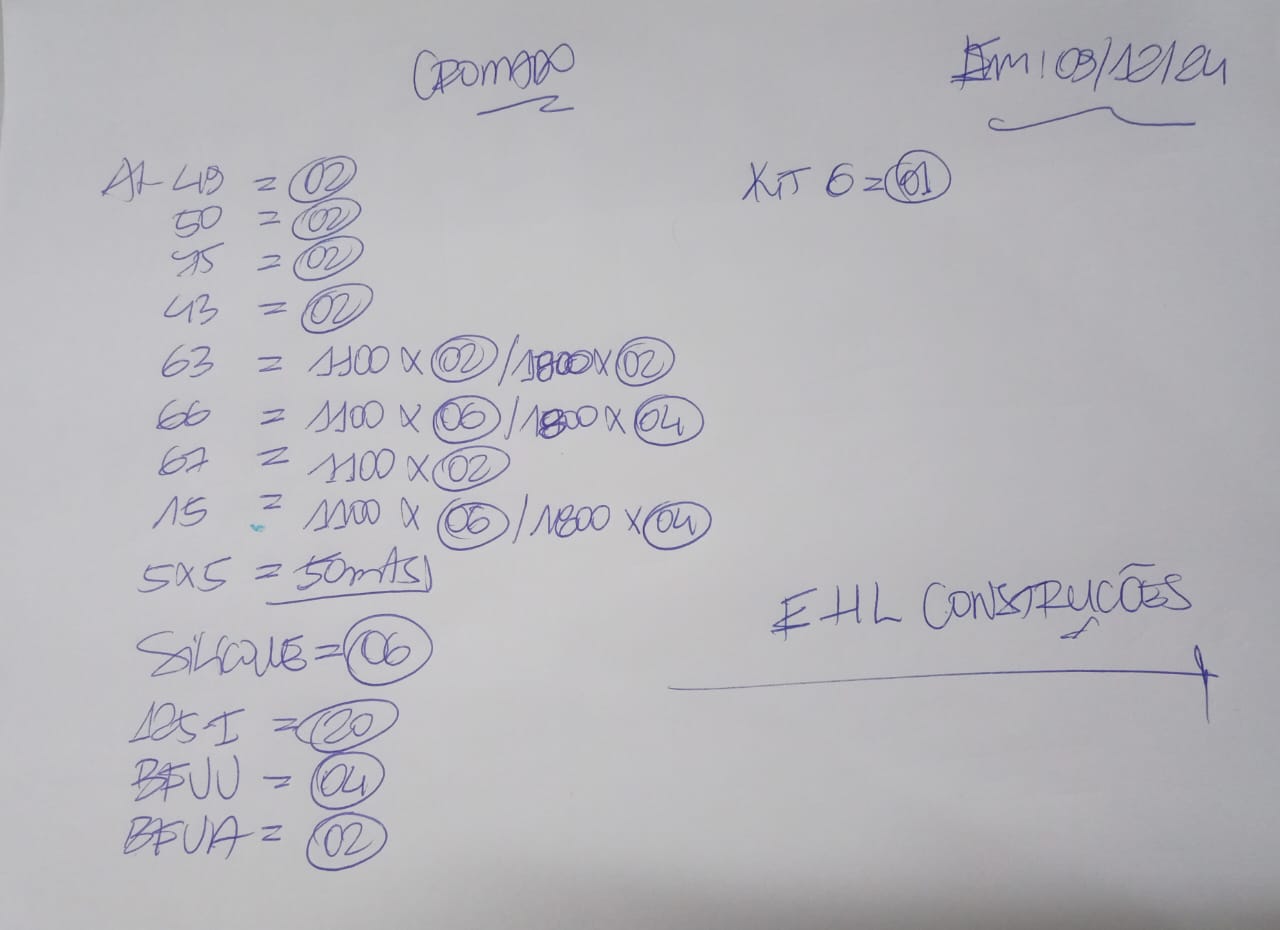 CROMADO
Em: 09/12/24
AL 49 = 02
KIT 6 = 01
50 = 02
75 = 02
43 = 02
63 = 1100 x 02 / 1800 x 02
66 = 1100 x 06 / 1800 x 04
67 = 1100 x 02
15 = 1100 x 06 / 1800 x 04
5x5 = 50mts
SILICONE = 06
125-I = 20
BFVU = 04
BFVA = 02
EHL CONSTRUÇÕES